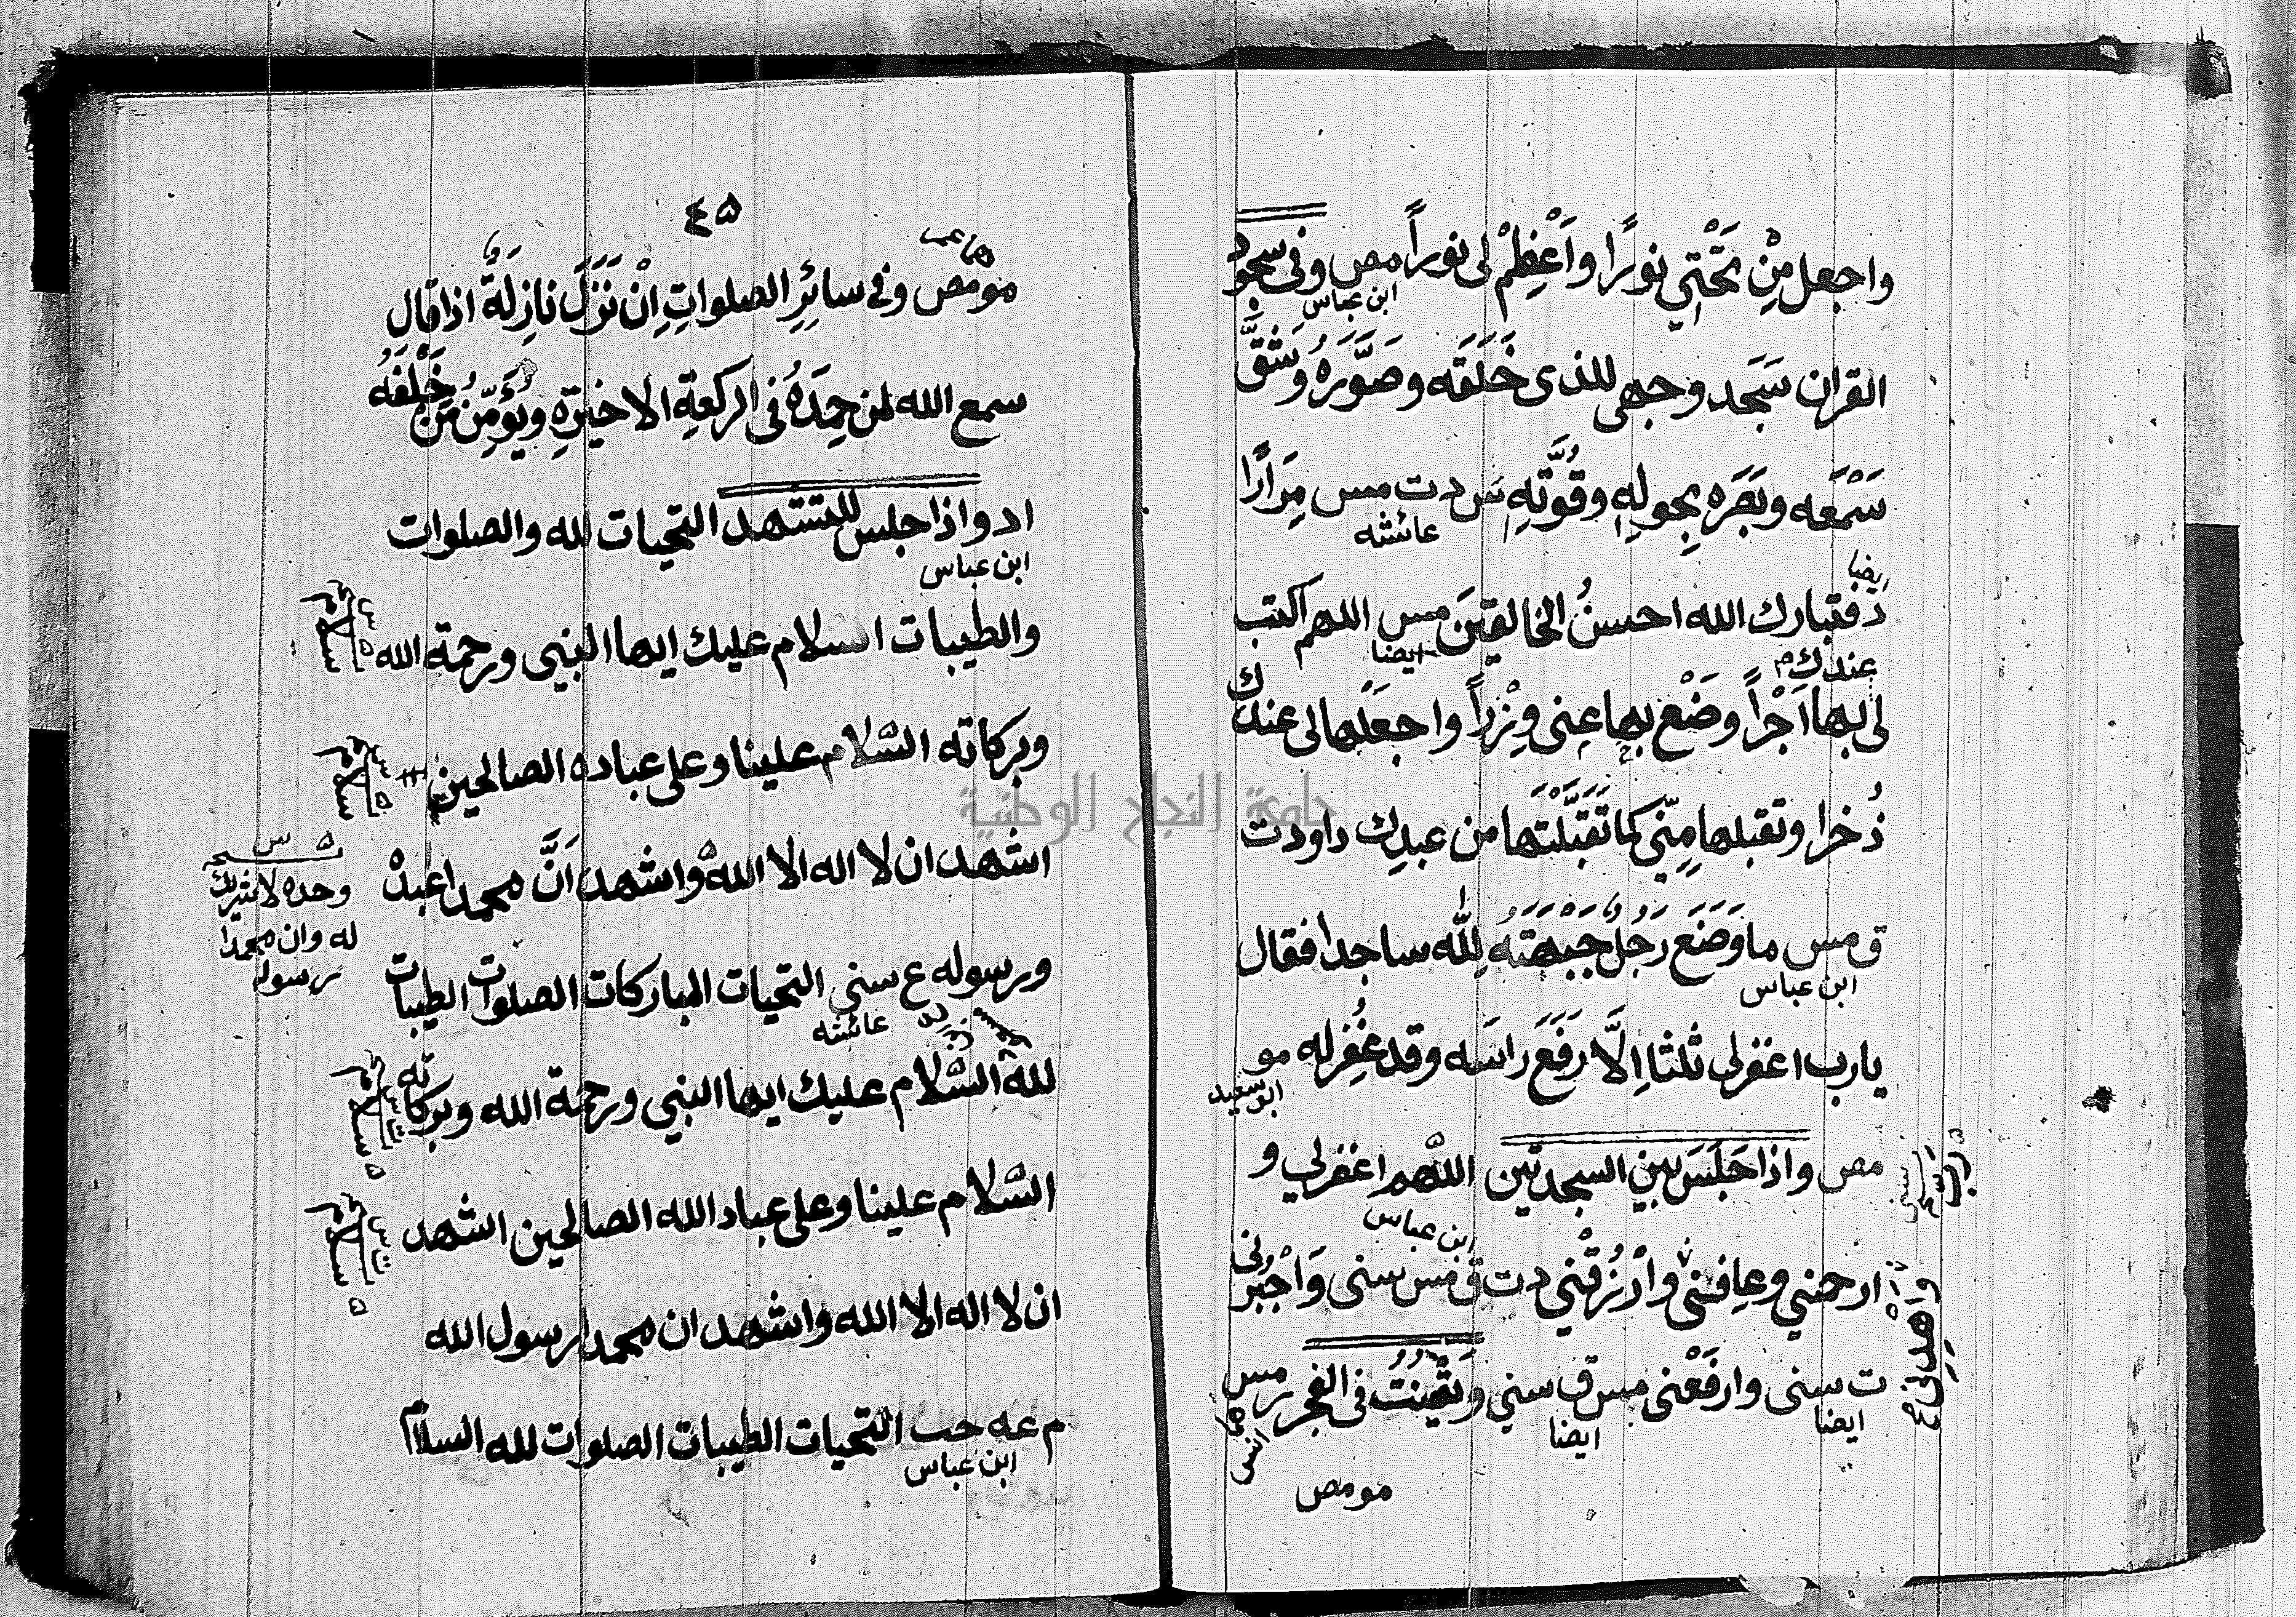 واجعل مِنْ تَحْتِي نورًا واَعْظِمْ لى نوراً مص وفى سجود
ابن عباس
القران سَجَد وجهى للذى خَلَقَه وصَوَّرَهُ وَشَقَّ
سَمْعَه وبَصَرَه بِحولِهِ وقُوَّتِهِ س د ت مس مِرَارًا
عائشه
ايضا
د فتبارك الله احسنُ الخالقينَ مس اللهم اكتب
ايضا
عندك م
لى بها اَجْراً وضَعْ بها عنى وِزْراً واجعَلْها لى عندك
ذُخرا وتقبلها مِنّى كما تَقَبَّلْتَها من عبدك داود ت
ق مس ما وَضَع رَجُلٌ جَبْهَتَهُ لِلّٰه ساجدا فقال
ابن عباس
يا رب اغفر لى ثلثا اِلَّا رَفَعَ راسَه وقد غُفِر له مو
ابو سعيد
مص واذا جَلَسَ بين السجدتين اللّهم اغفر لي و
ابن عباس
ارحمني وعافنى وارْزُقْني د ت ق مس سنى وَاجْبُرْنى
واهدنى
ت سنى وارفَعْنى مس ق سني ويَقْنُتُ فى الفجر مس
ايضا
ايضا
انس
مو مص
٤٥
مو مص وفى سائِرِ الصلواتِ اِنْ نَزَلَ نازِلَةٌ اذا قال
سمع الله لمن حمِدَهُ فى الركعةِ الاخيرةِ ويُؤَمِّنُ مَنْ خَلْفَهُ
ا د واذا جلس للتشهد التحيات لله والصلوات
ابن عباس
والطيبات السلام عليك ايها النبي ورحمة الله
وبركاته السّلام علينا وعلى عباده الصالحين
اشهد ان لا اله الا الله واشهد اَنَّ محمدا عبدهْ
وحده لا شريك
له وان محمدا
رسوله
ورسوله ع سني التحيات المباركات الصلوات الطيبات
عائشه
لله السّلام عليك ايها النبي ورحمة الله وبركاته
السّلام علينا وعلى عباد الله الصالحين اشهد
ان لا اله الا الله واشهد ان محمدا رسول الله
م عه حب التحيات الطيبات الصلوات لله السلام
ابن عباس
جامعة النجاح الوطنية